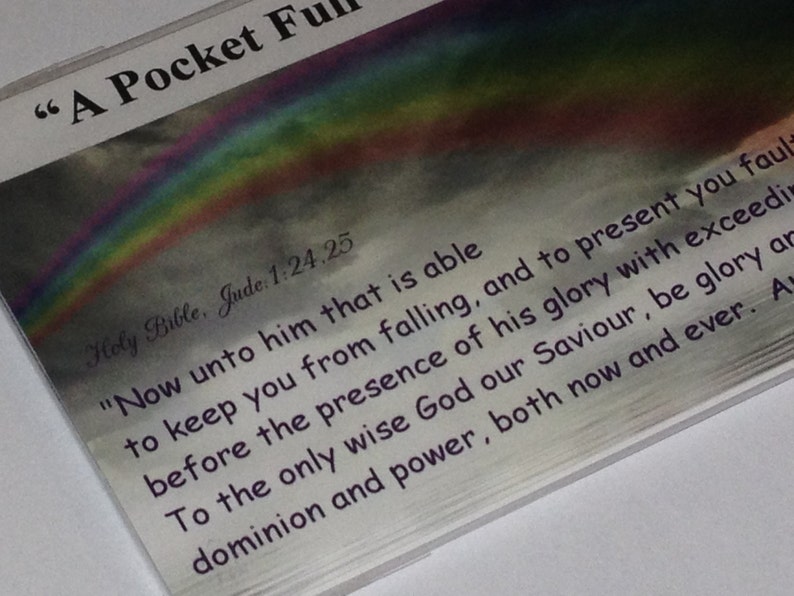 “A Pocket Full
Holy Bible, Jude:1:24,25
"Now unto him that is able
to keep you from falling, and to present you fault
before the presence of his glory with exceedin
To the only wise God our Saviour, be glory an
dominion and power, both now and ever. A